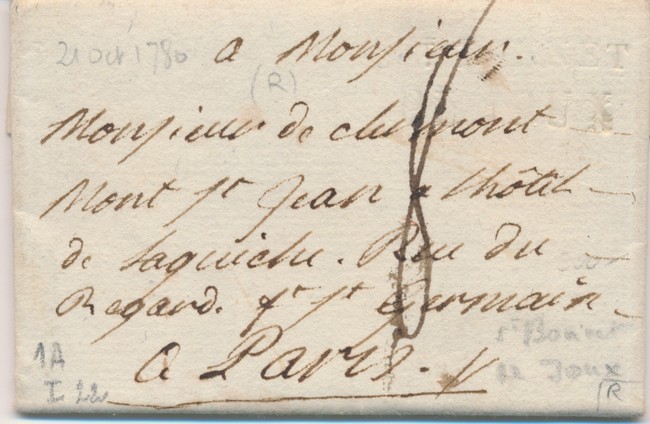 21 Oct 1780
a Monsieur.
(R)
Monsieur de clermont
Mont st Jean a lhôtel
de laguiche. Rue du
Regard. fr st Germain
a Paris.
8
1A
I 22
st Bonnet
de Joux
R